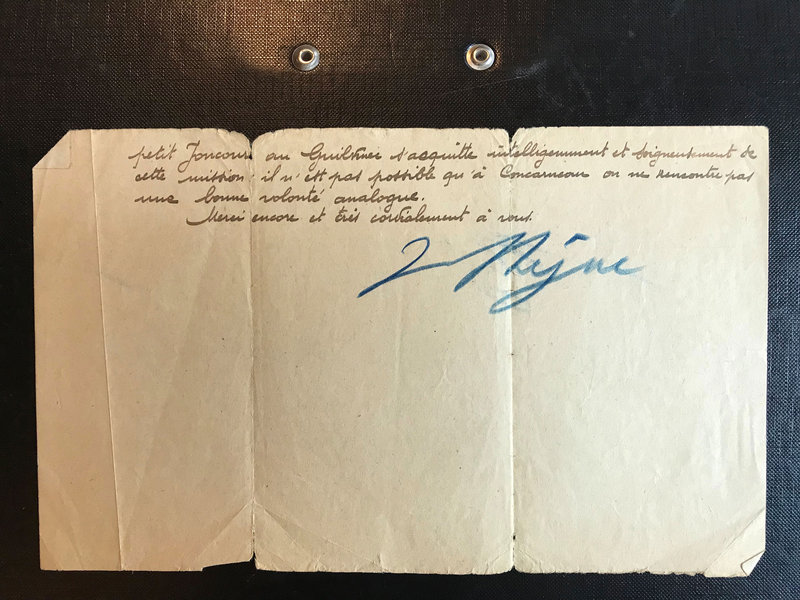 petit Joncour au Guilvinec s'acquitte intelligemment et soigneusement de
cette mission, il n'est pas possible qu'à Concarneau on ne rencontre pas
une bonne volonté analogue.
Merci encore et très cordialement à vous.